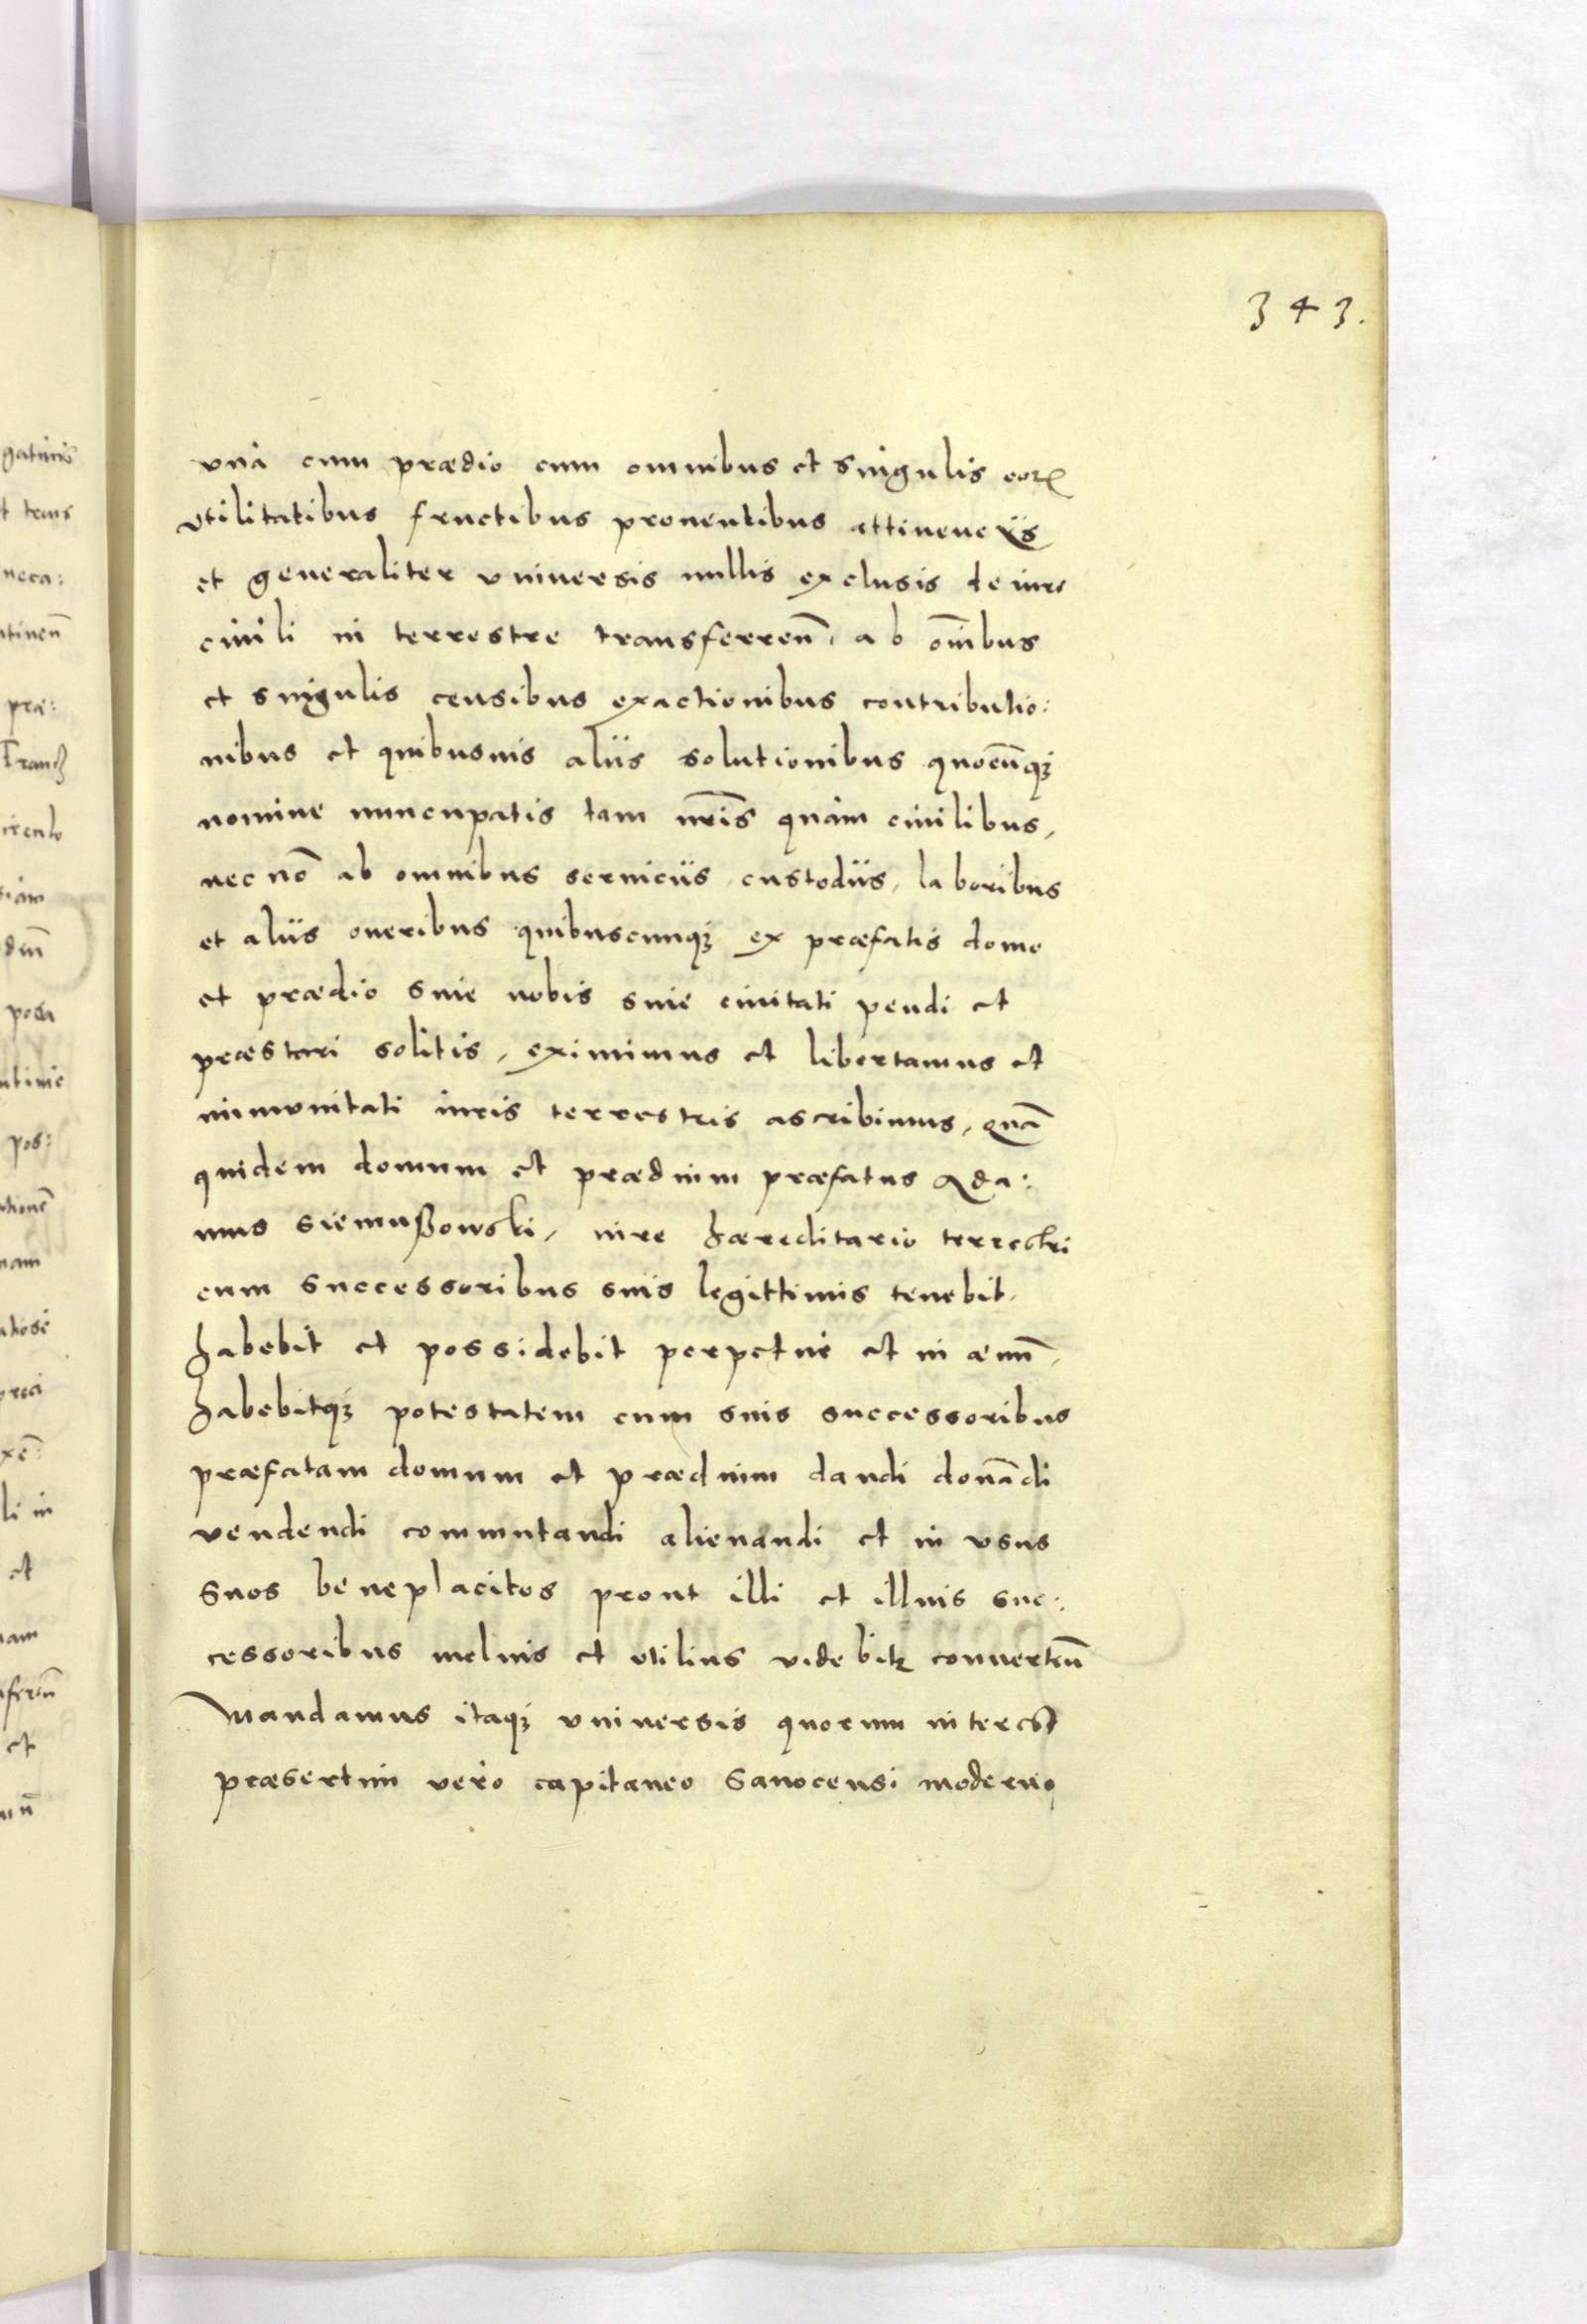 343.
vna cum prædio cum omnibus et singulis eorꝝ
vtilitatibus fructibus prouentibus attinencijs
et generaliter vniuersis nullis exclusis de iure
ciuili in terrestre transferren̄. ab om̄ibus
et singulis censibus exactionibus contributio:
nibus et quibusuis alijs solutionibus quocūqꝫ
nomine nuncupatis tam nr̄is quàm ciuilibus,
nec nō ab omnibus seruicijs, custodijs, laboribus
et alijs oneribus quibuscunqꝫ ex præfatis domo
et prædio siue nobis siue ciuitati pendi et
præstari solitis, eximimus et libertamus et
immunitati iuris terrestris ascribimus, quā
quidem domum et prædium præfatus Ada:
mus Siemußowski, iure hæreditario terrestri
cum successoribus suis legittimis tenebit,
habebit et possidebit perpetue et in æuū,
habebitqꝫ potestatem cum suis successoribus
præfatam domum et prædium dandi donādi
vendendi commutandi alienandi et in vsus
suos beneplacitos prout illi et illius suc:
cessoribus melius et vtilius videbitꝛ conuerten̄
Mandamus itaqꝫ vniuersis quorum interest
præsertim vero capitaneo Sanocensi moderno